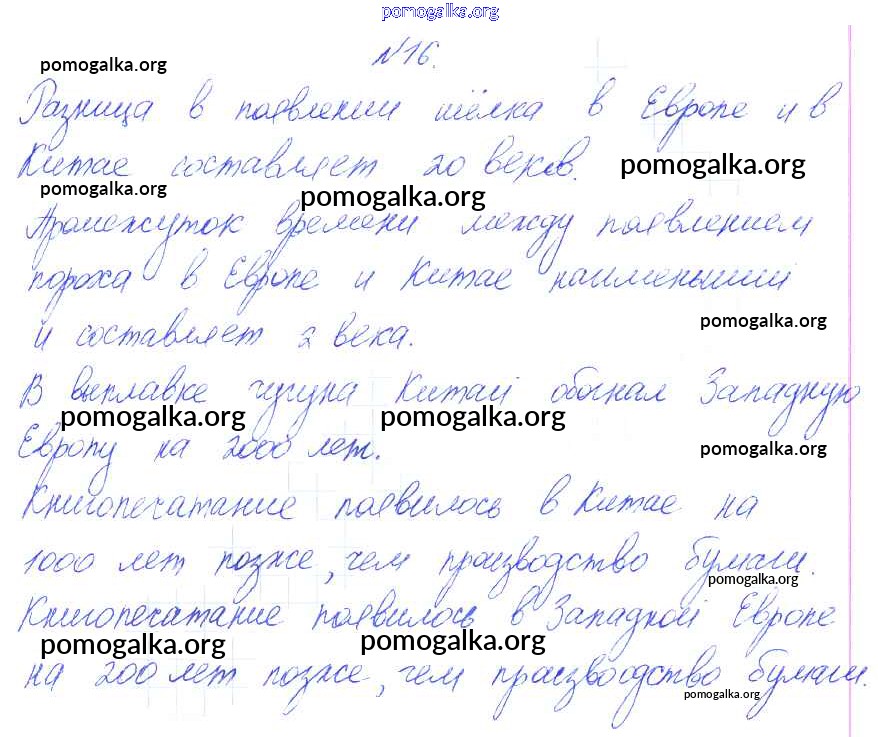 pomogalka.org
№16.
pomogalka.org
Разница в появлении шёлка в Европе и в
Китае составляет 20 веков.
pomogalka.org
pomogalka.org
pomogalka.org
Промежуток времени между появлением
пороха в Европе и Китае наименьший
pomogalka.org
и составляет 2 века.
В выплавке чугуна Китай обогнал Западную
pomogalka.org
pomogalka.org
pomogalka.org
Европу на 2000 лет.
Книгопечатание появилось в Китае на
1000 лет позже, чем производство бумаги.
pomogalka.org
Книгопечатание появилось в Западной Европе
pomogalka.org
pomogalka.org
на 200 лет позже, чем производство бумаги.
pomogalka.org